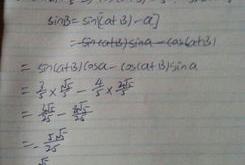 sinB = sin[(α+B) - α]
= sin(α+B) sinα - cos(α+B)
= sin(α+B) cosα - cos(α+B) sinα
= 3/5 × √5/5 - 4/5 × 2√5/5
= 3√5/25 - 8√5/25
= - 5√5/25